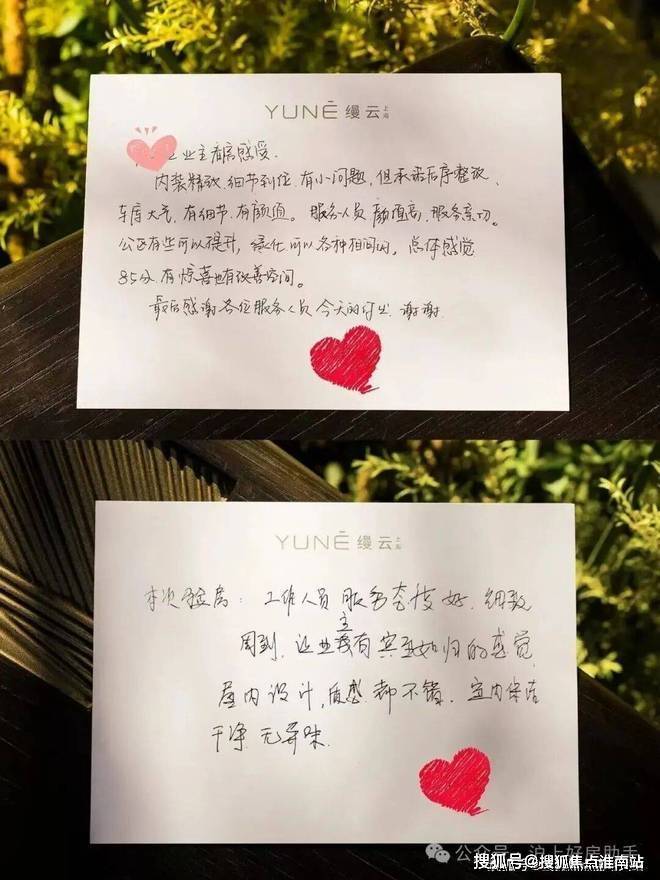 YUNE 缦云 上海
业主看房感受.
内装精致,细节到位,有小问题,但承诺后序整改、
车库大气,有细节,有颜值。服务人员颜值高,服务亲切。
公区有些可以提升,绿化可以各种相间的。总体感觉
85分,有惊喜也有改善空间。
最后感谢各位服务人员今天的付出,谢谢.
YUNE 缦云 上海
本次验房:工作人员服务态度好.细致
周到.让业主我有宾至如归的感觉
屋内设计,质感都不错.室内保洁
干净.无异味.
公众号·沪上好房助手
搜狐号@搜狐焦点淮南站